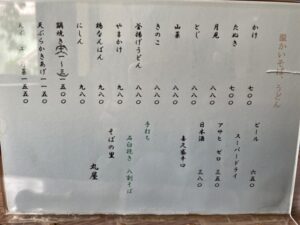 温かいそば うどん
かけ 七〇〇
たぬき 七〇〇
月見 八〇〇
とじ 八〇〇
山菜 八〇〇
きのこ 八〇〇
釜揚げうどん 八八〇
やまかけ 九八〇
鶏なんばん 九八〇
にしん 九八〇
鍋焼き 一五〇〇
天ぷらかきあげ 一一五〇
一五五〇
ビール 六五〇
スーパードライ
アサヒ ゼロ 三五〇
日本酒 三八〇
喜久盛辛口
手打ち
石臼挽き 八割そば
そばの里 丸屋